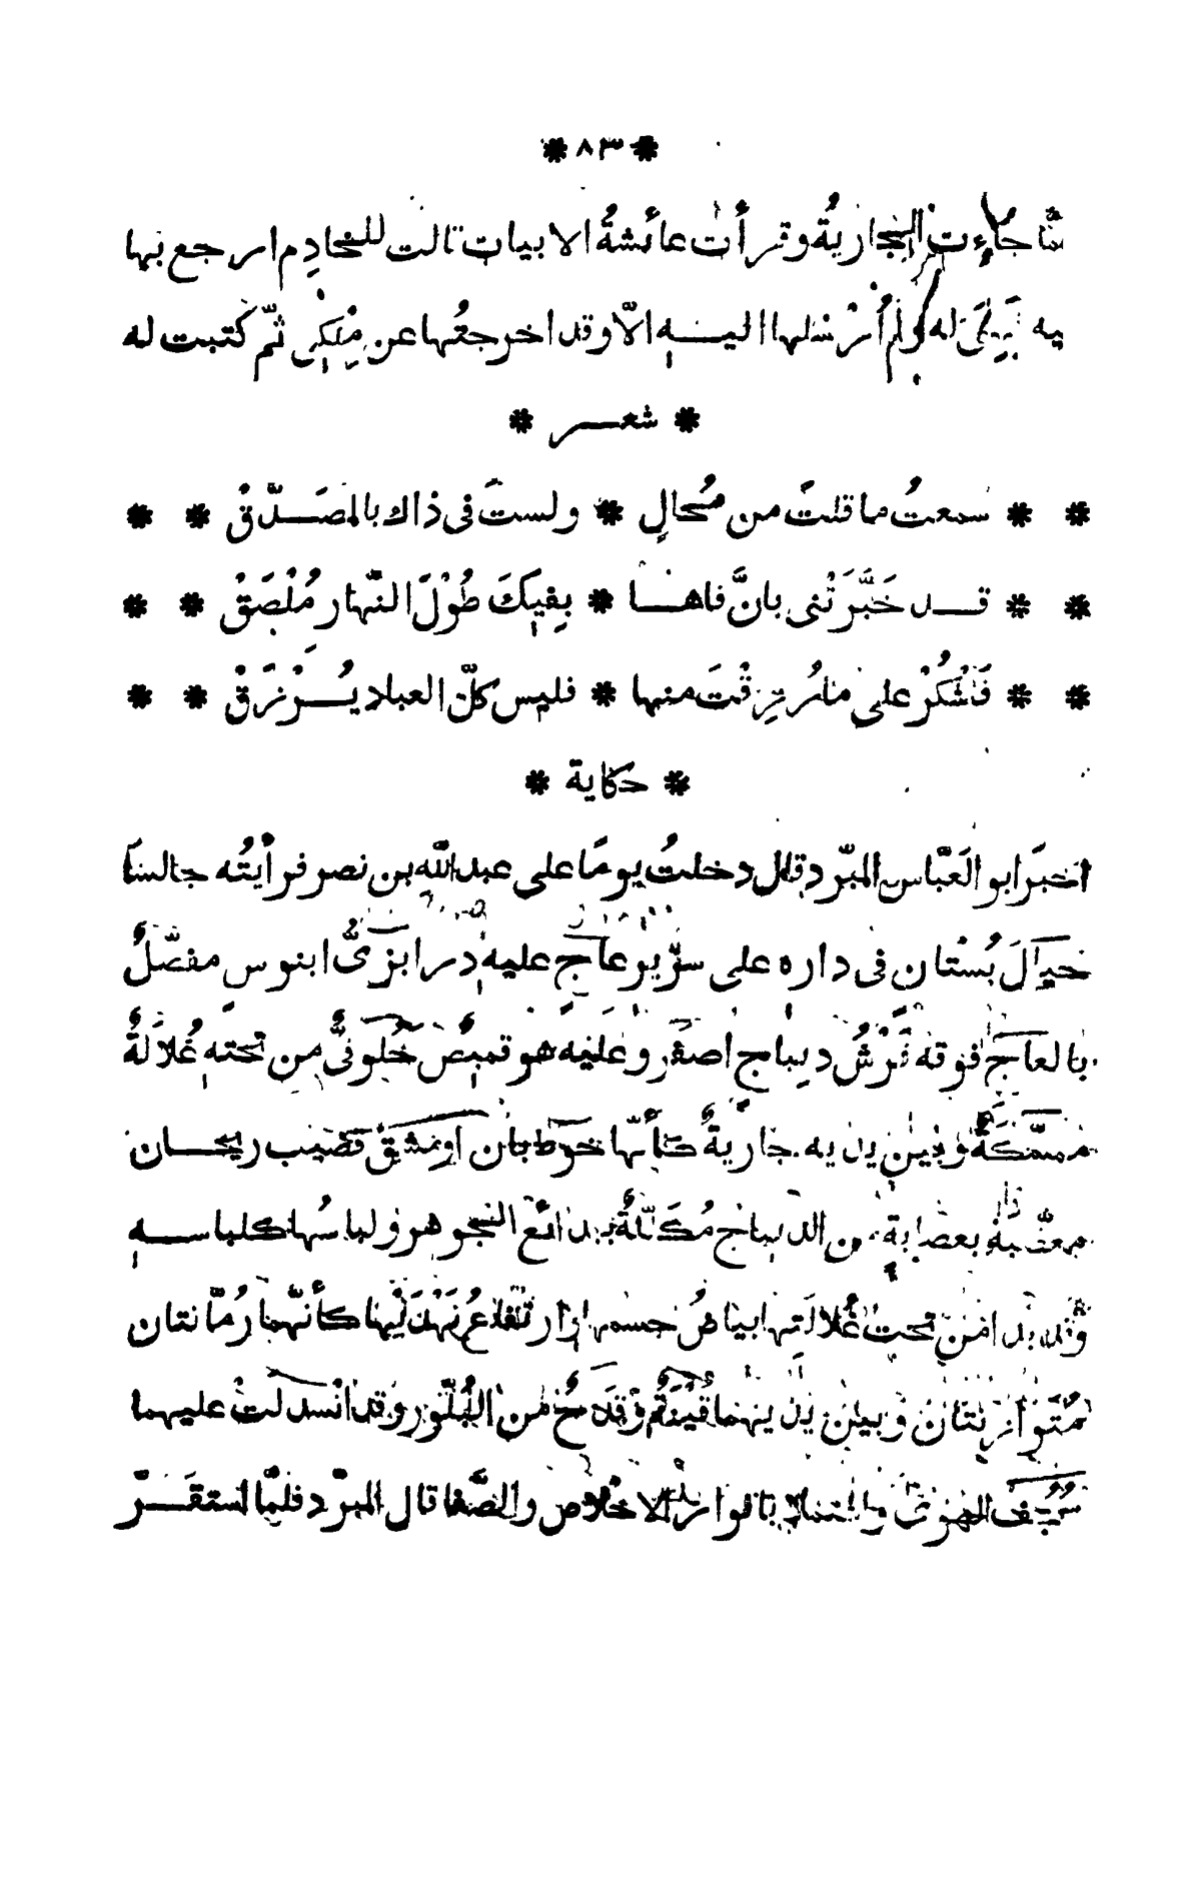 * ٨٣ *
لمّا جاءت الجاريةُ وقرأت عائشةُ الابيات قالت للخادِم ارجع بها
اليه فهى له ولم أُرْسلها اليـــه الّا وقد اخرجتُها عن مِلْكِى ثمّ كتبت له
* شعـــر *
* * سمعتُ ما قلتَ من مُحالٍ * ولستَ فى ذاك بالمُصَـــدَّقْ * *
* * قـــد خَبَّرَتْنى بانَّ فاهـــا * بِفيكَ طُوْلَ النّهار مُلْصَقْ * *
* * فَاشْكُرْ على ما رُزِقْتَ منها * فليس كلّ العباد يُـــرْزَقْ * *
* حكاية *
اخبرَ ابو العَبّاس المبّرد قال دخلتُ يومًا على عبد اللّهِ بن نصر فرأيتُه جالسًا
حيالَ بُسْتان فى داره على سرّيرِ عاجٍ عليه درابزىُّ ابنوسٍ مفصَّلٌ
بالعاج فوقه فَرْشُ ديباج اصفر وعليه هو قميصٌ خُلوقىٌّ من تحته غُلالةٌ
ممسّكةٌ وبين يديه جاريةٌ كأنّها خوط بان او مشق قضيب ريحـــان
معصّبة بعصابةٍ من الديباج مُكَلّلةٌ ببدائع الجوهر ولباسُها كلباســـهِ
وقد بدا من تحت غُلالَتِها بياضُ جسمها ارتفاعُ نَهْدَيْها كأنّهما رُمّانتان
مُتَوازنتان وبين يديهما قُنينة وقدحٌ من البُلّور وقد انْسدلت عليهما
سُجُف الهوى بانوار الاخلاص والصَّفا قال المبرّد فلمّا استقـــرّ